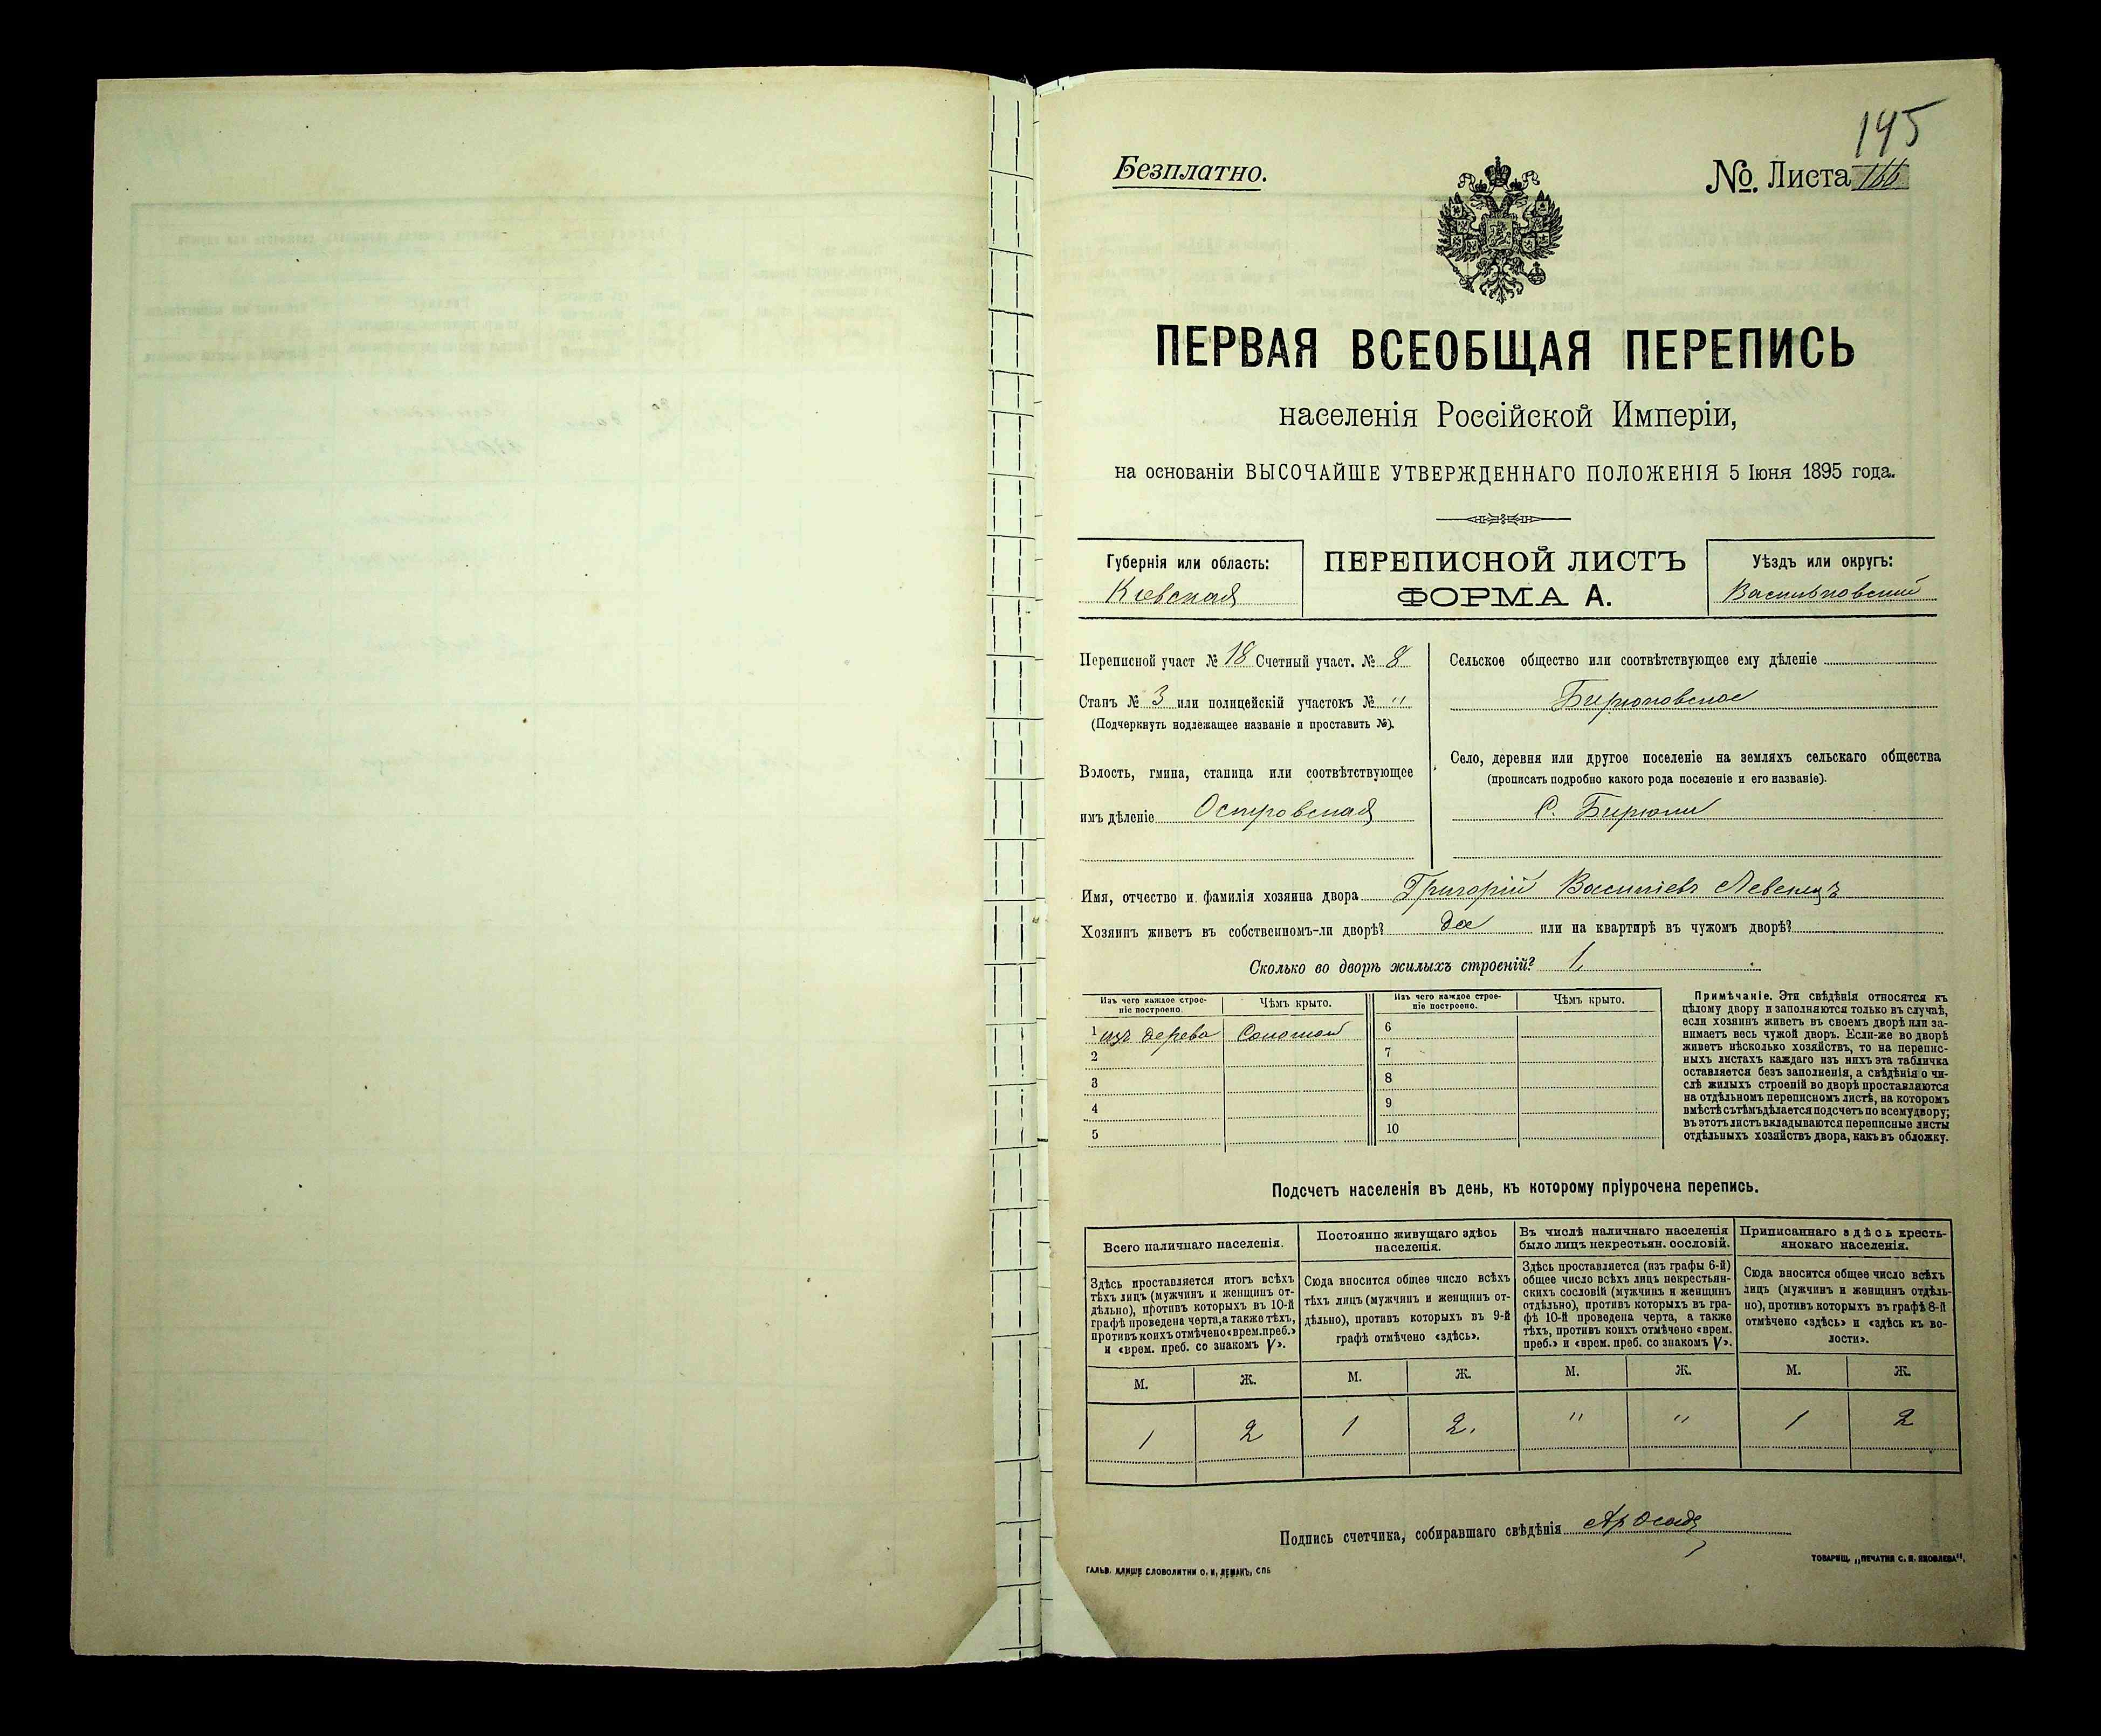 195
Безплатно.
№. Листа 166
ПЕРВАЯ ВСЕОБЩАЯ ПЕРЕПИСЬ
населенія Россійской Имперіи,
на основаніи ВЫСОЧАЙШЕ УТВЕРЖДЕННАГО ПОЛОЖЕНІЯ 5 Іюня 1895 года.
Губернія или область:
Кіевская
ПЕРЕПИСНОЙ ЛИСТЪ
ФОРМА А.
Уѣздъ или округъ:
Васильковскій
Переписной участ № 18 Счетный участ. № 8
Станъ № 3 или полицейскій участокъ № "
(Подчеркнуть подлежащее названіе и проставить №).
Волость, гмина, станица или соотвѣтствующее
имъ дѣленіе Островская
Сельское общество или соотвѣтствующее ему дѣленіе
Бирюковское
Село, деревня или другое поселеніе на земляхъ сельскаго общества
(прописать подробно какого рода поселеніе и его названіе).
С. Бирюки
Имя, отчество и фамилія хозяина двора Григорій Васильевъ Левенецъ
Хозяинъ живетъ въ собственномъ-ли дворѣ? да или на квартирѣ въ чужомъ дворѣ?
Сколько во дворѣ жилыхъ строеній? 1
Изъ чего каждое строе-
ніе построено.
Чѣмъ крыто.
Изъ чего каждое строе-
ніе построено.
Чѣмъ крыто.
1 изъ дерева Соломой 6
2 7
3 8
4 9
5 10
Примѣчаніе. Эти свѣдѣнія относятся къ
цѣлому двору и заполняются только въ случаѣ,
если хозяинъ живетъ въ своемъ дворѣ или за-
нимаетъ весь чужой дворъ. Если-же во дворѣ
живетъ нѣсколько хозяйствъ, то на перепис-
ныхъ листахъ каждаго изъ нихъ эта табличка
оставляется безъ заполненія, а свѣдѣнія о чи-
слѣ жилыхъ строеній во дворѣ проставляются
на отдѣльномъ переписномъ листѣ, на которомъ
вмѣстѣ съ тѣмъ дѣлается подсчетъ по всему двору;
въ этотъ листъ вкладываются переписные листы
отдѣльныхъ хозяйствъ двора, какъ въ обложку.
Подсчетъ населенія въ день, къ которому пріурочена перепись.
Всего наличнаго населенія.
Здѣсь проставляется итогъ всѣхъ
тѣхъ лицъ (мужчинъ и женщинъ от-
дѣльно), противъ которыхъ въ 10-й
графѣ проведена черта, а также тѣхъ,
противъ коихъ отмѣчено «врем. преб.»
и «врем. преб. со знакомъ V».
Постоянно живущаго здѣсь
населенія.
Сюда вносится общее число всѣхъ
тѣхъ лицъ (мужчинъ и женщинъ от-
дѣльно), противъ которыхъ въ 9-й
графѣ отмѣчено «здѣсь».
Въ числѣ наличнаго населенія
было лицъ некрестьян. сословій.
Здѣсь проставляется (изъ графы 6-й)
общее число всѣхъ лицъ некрестьян-
скихъ сословій (мужчинъ и женщинъ
отдѣльно), противъ которыхъ въ гра-
фѣ 10-й проведена черта, а также
тѣхъ, противъ коихъ отмѣчено «врем.
преб.» и «врем. преб. со знакомъ V».
Приписаннаго здѣсь кресть-
янскаго населенія.
Сюда вносится общее число всѣхъ
лицъ (мужчинъ и женщинъ отдѣль-
но), противъ которыхъ въ графѣ 8-й
отмѣчено «здѣсь» и «здѣсь къ во-
лости».
М. Ж. М. Ж. М. Ж. М. Ж.
1 2 1 2. " " 1 2
Подпись счетчика, собиравшаго свѣдѣнія
ГАЛЬВ. КЛИШЕ СЛОВОЛИТНИ О. И. ЛЕМАНЪ, СПБ
ТОВАРИЩ. „ПЕЧАТНЯ С. П. ЯКОВЛЕВА".